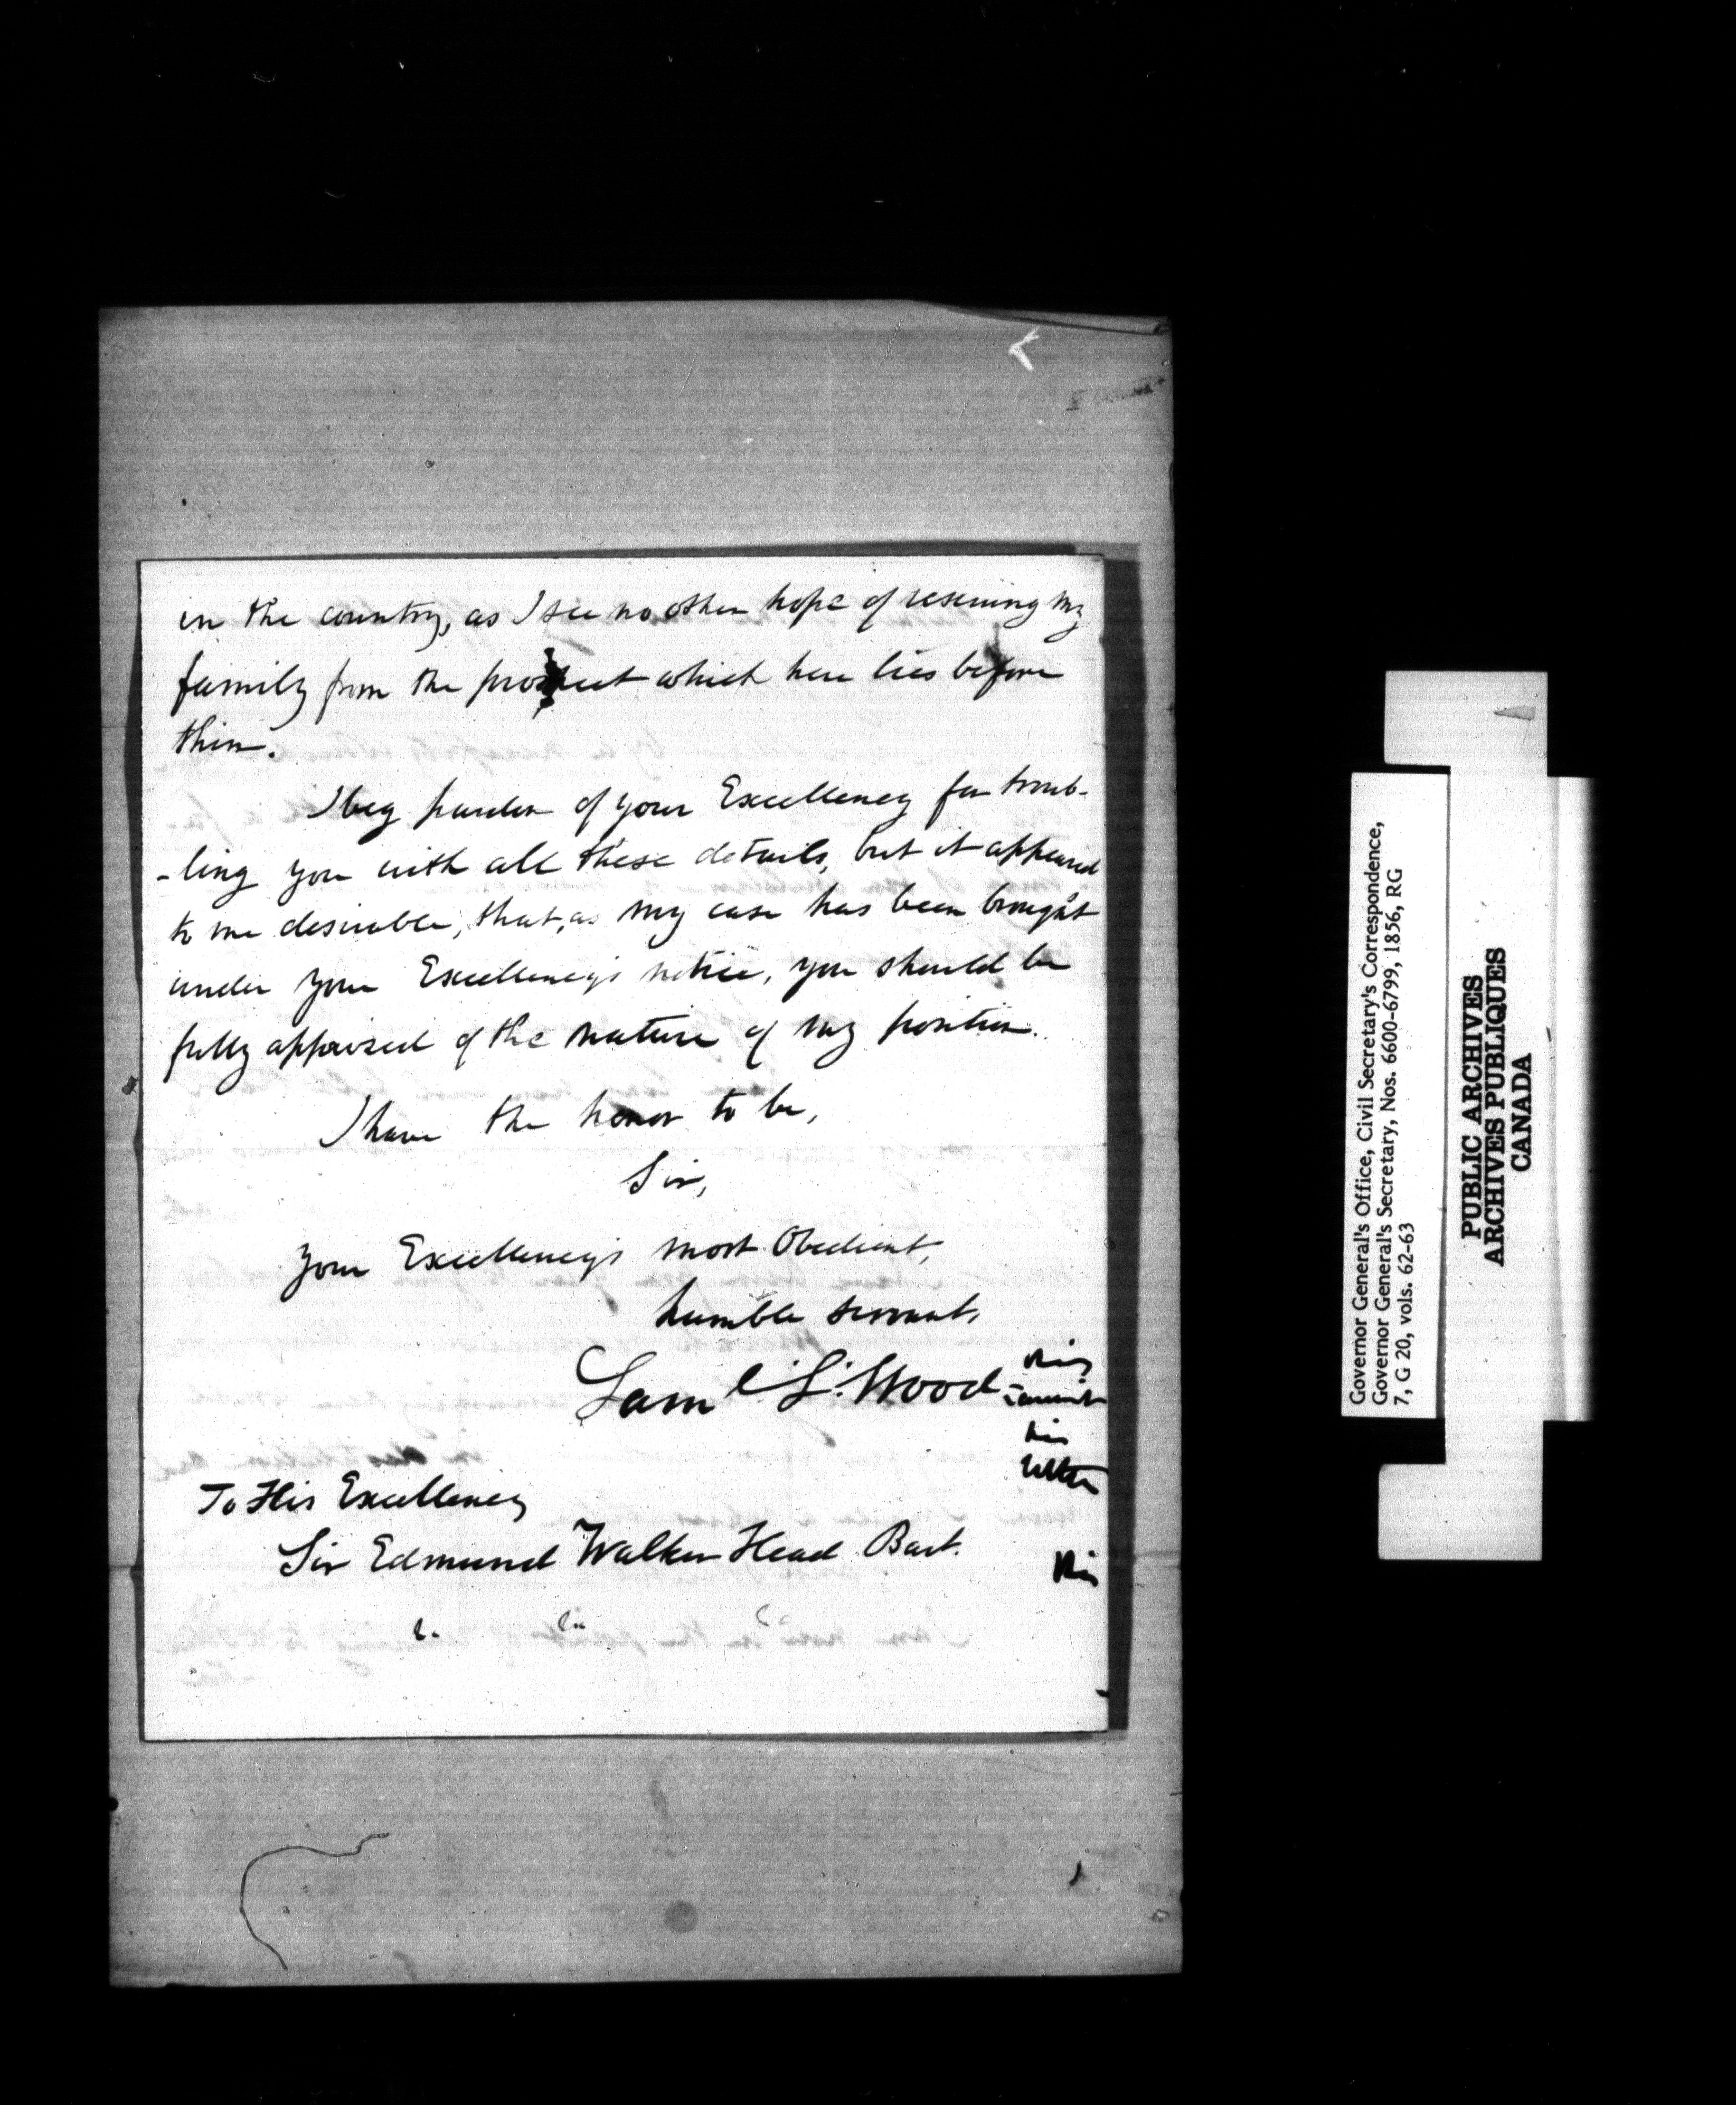 in the country, as I see no other hope of rescuing my
family from the prospect which here lies before
them.
I beg pardon of your Excellency for troub-
-ling you with all these details, but it appeared
to me desirable, that, as my case has been brought
under your Excellency's notice, you should be
fully apprised of the nature of my position.
I have the honor to be,
Sir,
Your Excellency's most Obedient,
humble servant,
Saml S. Wood
his
letter
To His Excellency
Sir Edmund Walker Head Bart.
his
Governor General's Office, Civil Secretary's Correspondence,
Governor General's Secretary, Nos. 6600-6799, 1856, RG
7, G 20, vols. 62-63
PUBLIC ARCHIVES
ARCHIVES PUBLIQUES
CANADA